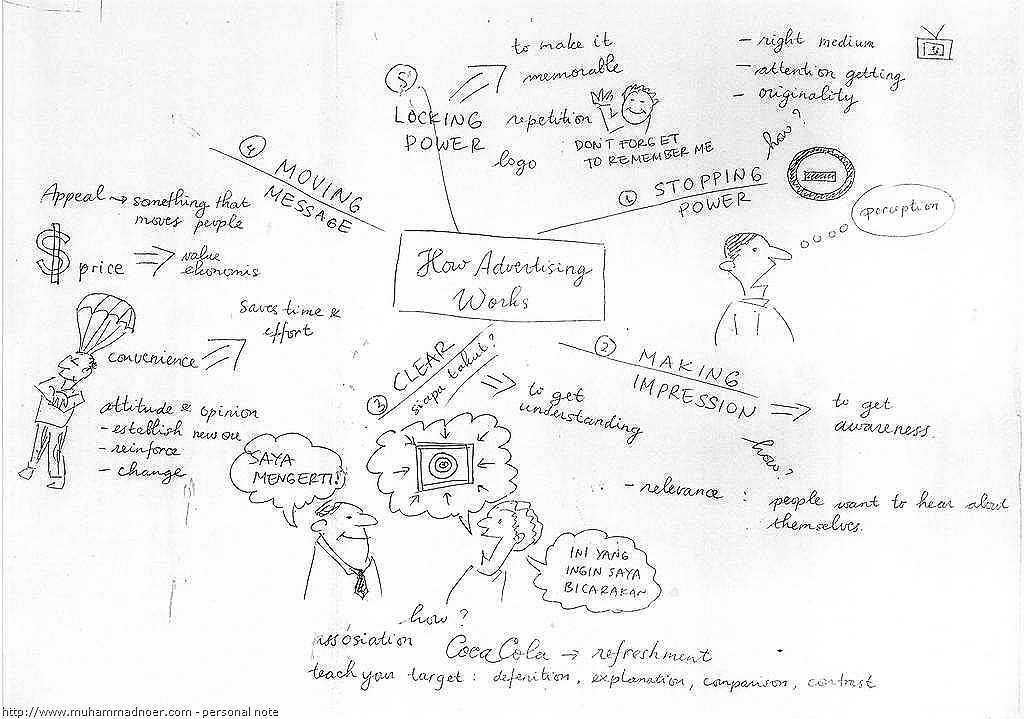 How Advertising
Works
1 STOPPING
POWER
how?
- right medium
- attention getting
- originality
perception
2 MAKING
IMPRESSION
to get
awareness.
how?
- relevance : people want to hear about
themselves.
3 CLEAR
siapa takut?
to get
understanding
SAYA
MENGERTI!
INI YANG
INGIN SAYA
BICARAKAN
how?
assosiation CocaCola → refreshment
teach your target : defenition, explanation, comparison, contrast
4 MOVING
MESSAGE
Appeal → something that
moves people
$ price
value
ekonomis
convenience
saves time &
effort
attitude & opinion
- establish new one
- reinforce
- change
5 LOCKING
POWER
to make it
memorable
repetition
logo
DON'T FORGET
TO REMEMBER ME
http://www.muhammadnoer.com - personal note